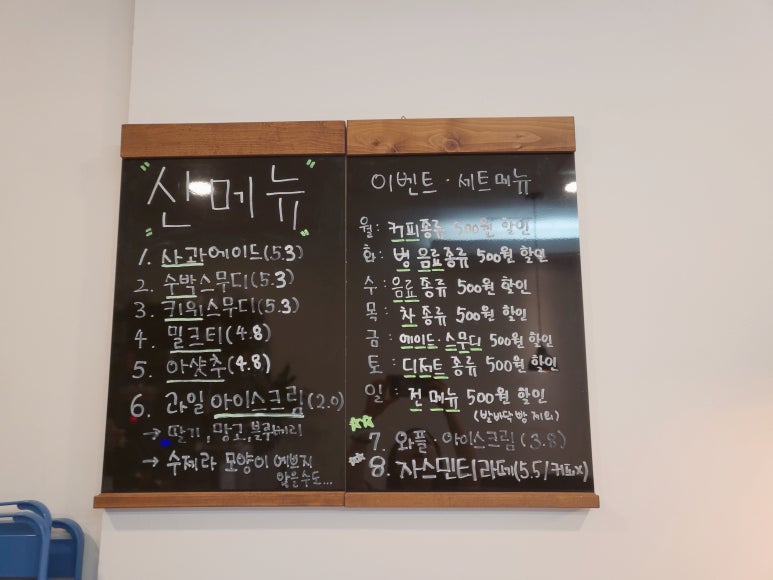 "산메뉴"
1. 사과에이드(5.3)
2. 수박스무디(5.3)
3. 키위스무디(5.3)
4. 밀크티(4.8)
5. 아샷추(4.8)
6. 과일 아이스크림(2.0)
→ 딸기, 망고, 블루베리
→ 수제라 모양이 예쁘지
않을수도...
이벤트·세트메뉴
월: 커피종류 500원 할인
화: 병 음료종류 500원 할인
수: 음료 종류 500원 할인
목: 차 종류 500원 할인
금: 에이드·스무디 500원 할인
토: 디저트 종류 500원 할인
일: 전 메뉴 500원 할인
(발바닥빵 제외)
7. 와플·아이스크림 (3.8)
8. 자스민티라떼(5.5/커피x)